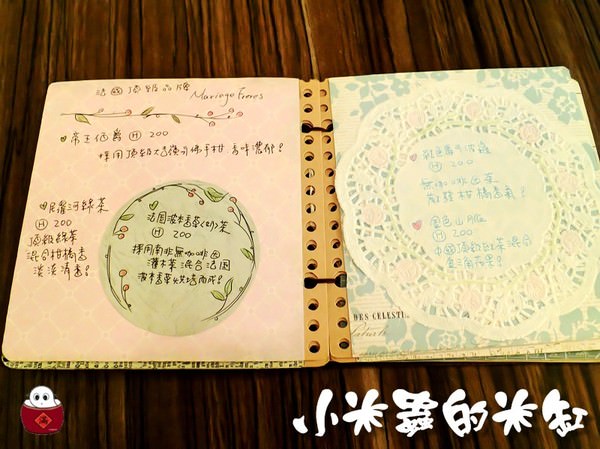 法國頂級品牌 Mariage Freres
帝王伯爵 H 200
採用頂級大吉嶺
佛手柑 香味濃郁!
尼羅河綠茶
H 200
頂級綠茶
混合柑橘香
淡淡清香!
法國波本香草(奶)茶
H 200
採用南非無咖啡因
灌木茶混合法國
波本香草烘培而成!
H 200
無咖啡因茶
柑橘香氣!
金色山脈
H 200
中國頂級紅茶混合
金三角花果!
DES CELESTI
小米蟲的米缸